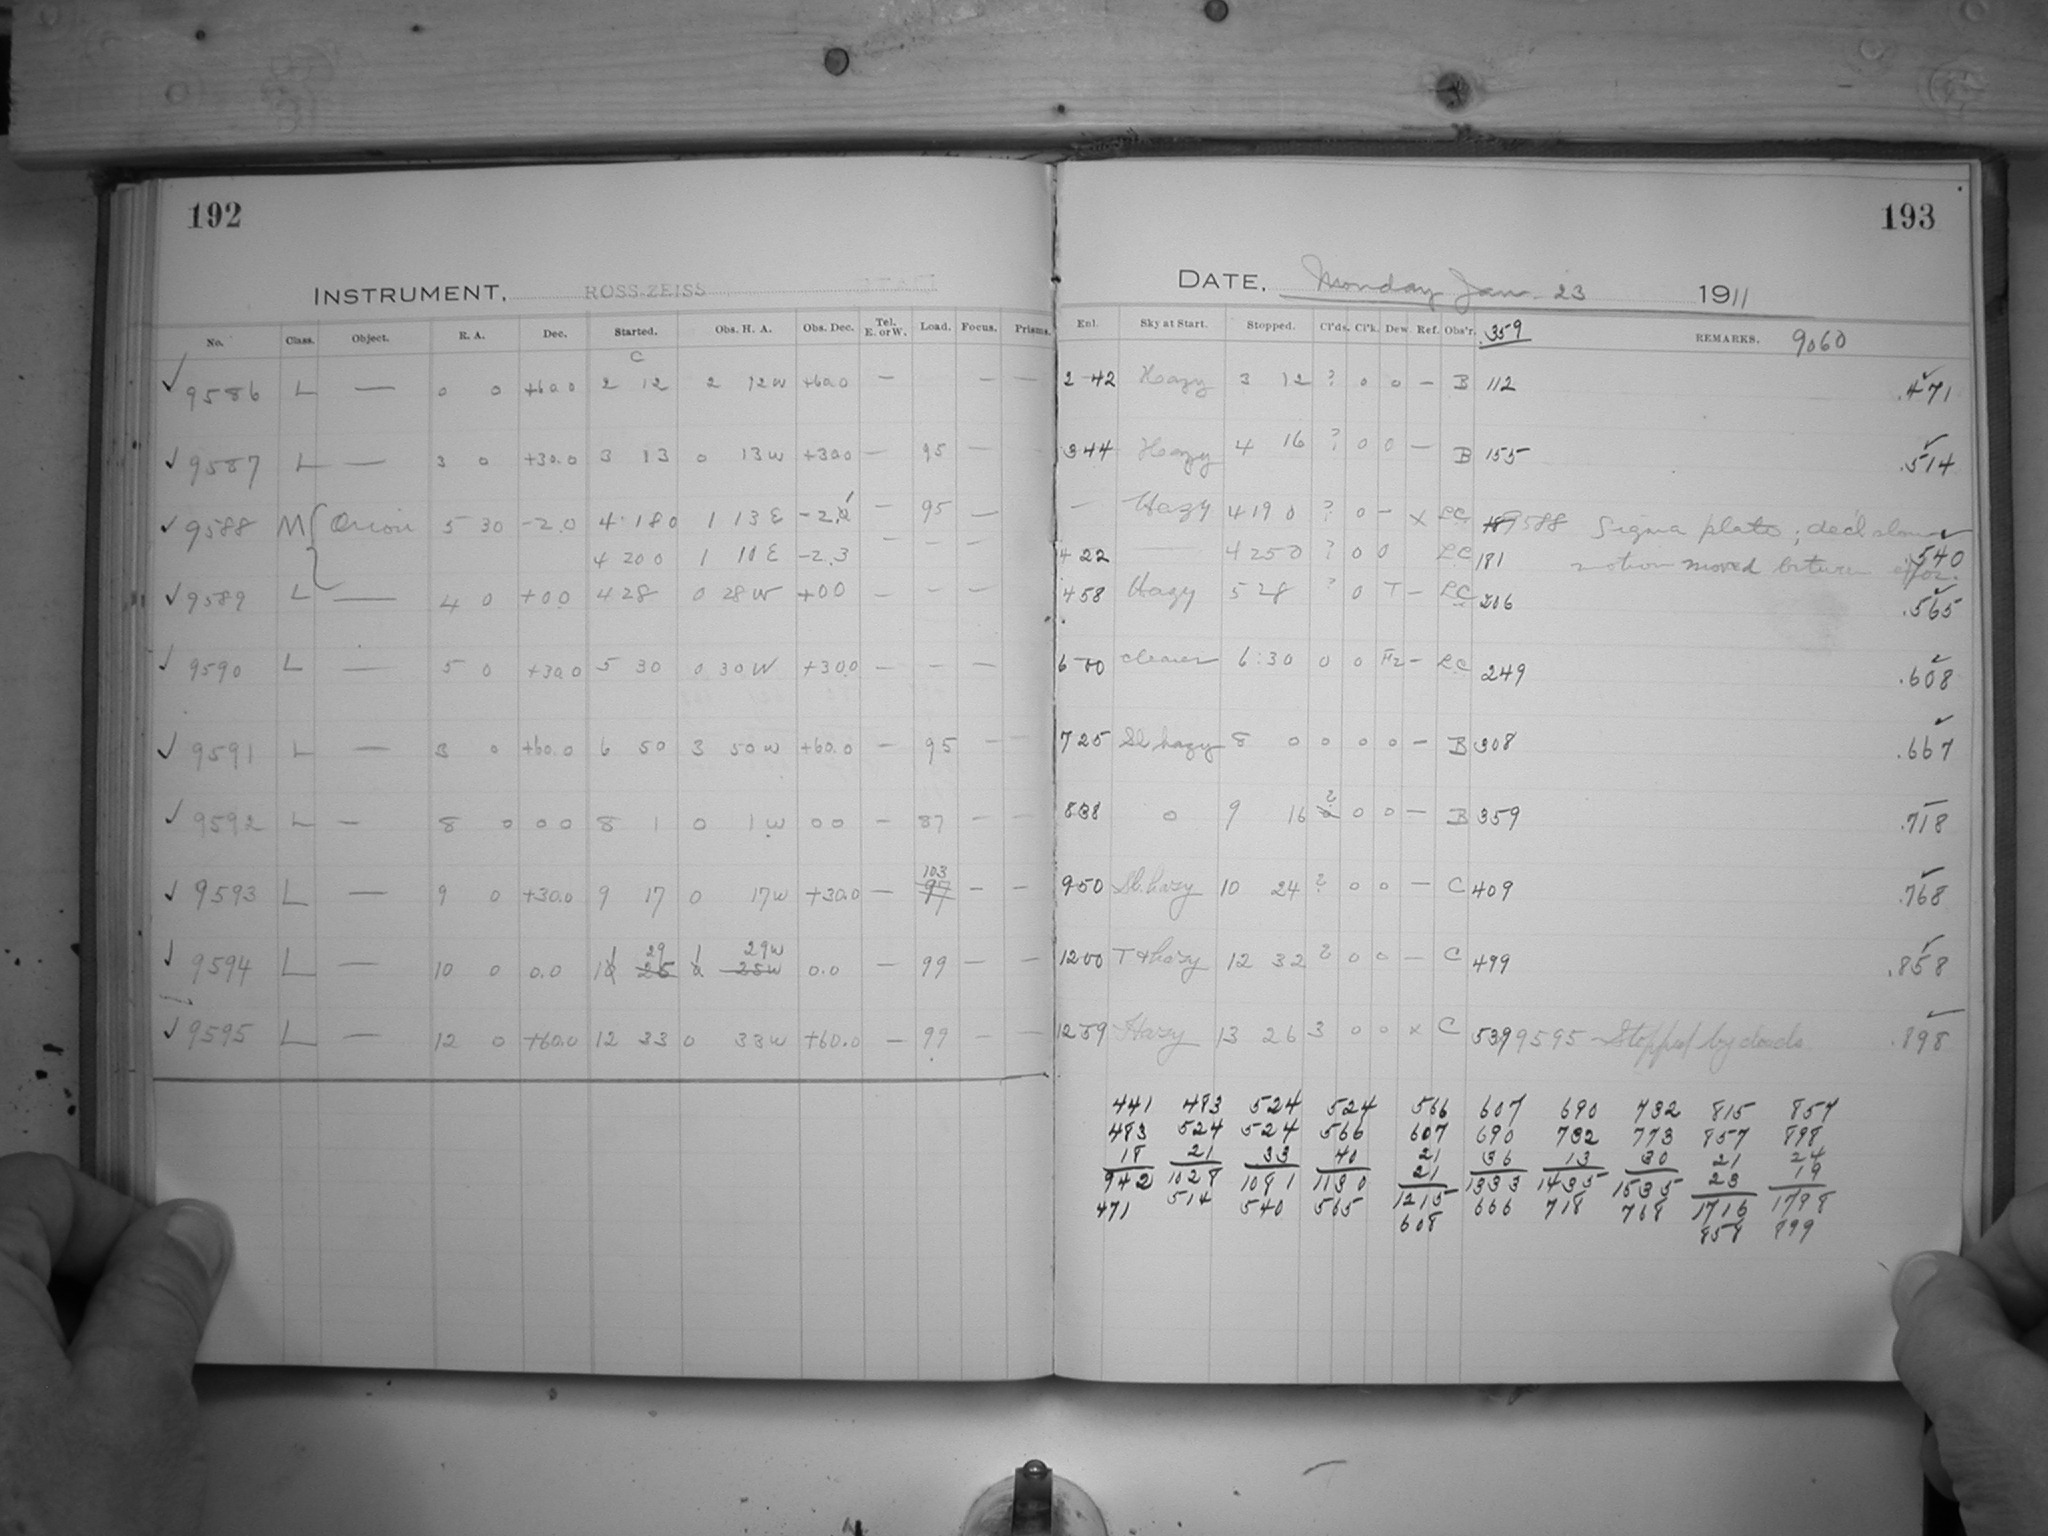 192
INSTRUMENT, ROSS-ZEISS
No. Class. Object. R. A. Dec. Started. Obs. H. A. Obs. Dec. Tel. E. or W. Load. Focus. Prisms.
C
✓ 9586 L — 0 0 +60.0 2 12 2 12 W +60.0 — — —
✓ 9587 L — 3 0 +30.0 3 13 0 13 W +30.0 — 95 —
✓ 9588 M Orion 5 30 -2.0 4 18 0 1 13 E — 95 —
4 20 0 1 10 E -2.3 — — —
✓ 9589 L — 4 0 +0.0 4 28 0 28 W +0.0 — — —
✓ 9590 L — 5 0 +30.0 5 30 0 30 W +30.0 — — —
✓ 9591 L — 3 0 +60.0 6 50 3 50 W +60.0 — 95 — —
✓ 9592 L — 8 0 0 0 8 1 0 1 W 0 0 — 87 — —
103
✓ 9593 L — 9 0 +30.0 9 17 0 17 W +30.0 — 97 — —
29 29 W
✓ 9594 L — 10 0 0.0 10 25 25 W 0.0 — 99 — —
✓ 9595 L — 12 0 +60.0 12 33 0 33 W +60.0 — 99 — —
193
DATE, Monday Jan. 23 1911
Enl. Sky at Start. Stopped. Cl'ds. Cl'k. Dew. Ref. Obs'r. .359 REMARKS. 9060
2 42 Hazy 3 12 ? 0 0 — B 112 .471
3 44 Hazy 4 16 ? 0 0 — B 155 .514
— Hazy 4 19 0 ? 0 — x LC 9588 Sigma plate; decl. slow
4 22 — 4 25 0 ? 0 0 LC 181 motion moved between .540
4 58 Hazy 5 28 ? 0 T — LC 206 .565
6 00 clearer 6:30 0 0 F2 — LC 249 .608
7 25 Sl. hazy 8 0 0 0 0 — B 308 .667
8 38 0 9 16 ? 0 0 — B 359 .718
9 50 Sl. hazy 10 24 ? 0 0 — C 409 .768
12 00 T + hazy 12 32 ? 0 0 — C 499 .858
12 59 Hazy 13 26 3 0 0 x C 539 9595 - Stopped by clouds .898
441 483 524 524 566 607 690 732 815 857
483 524 524 566 607 690 732 773 857 898
18 21 33 40 21 36 13 30 21 24
942 1028 1081 1130 21 1333 1435 1535 23 19
471 514 540 565 1215 666 718 768 1716 1798
608 858 899